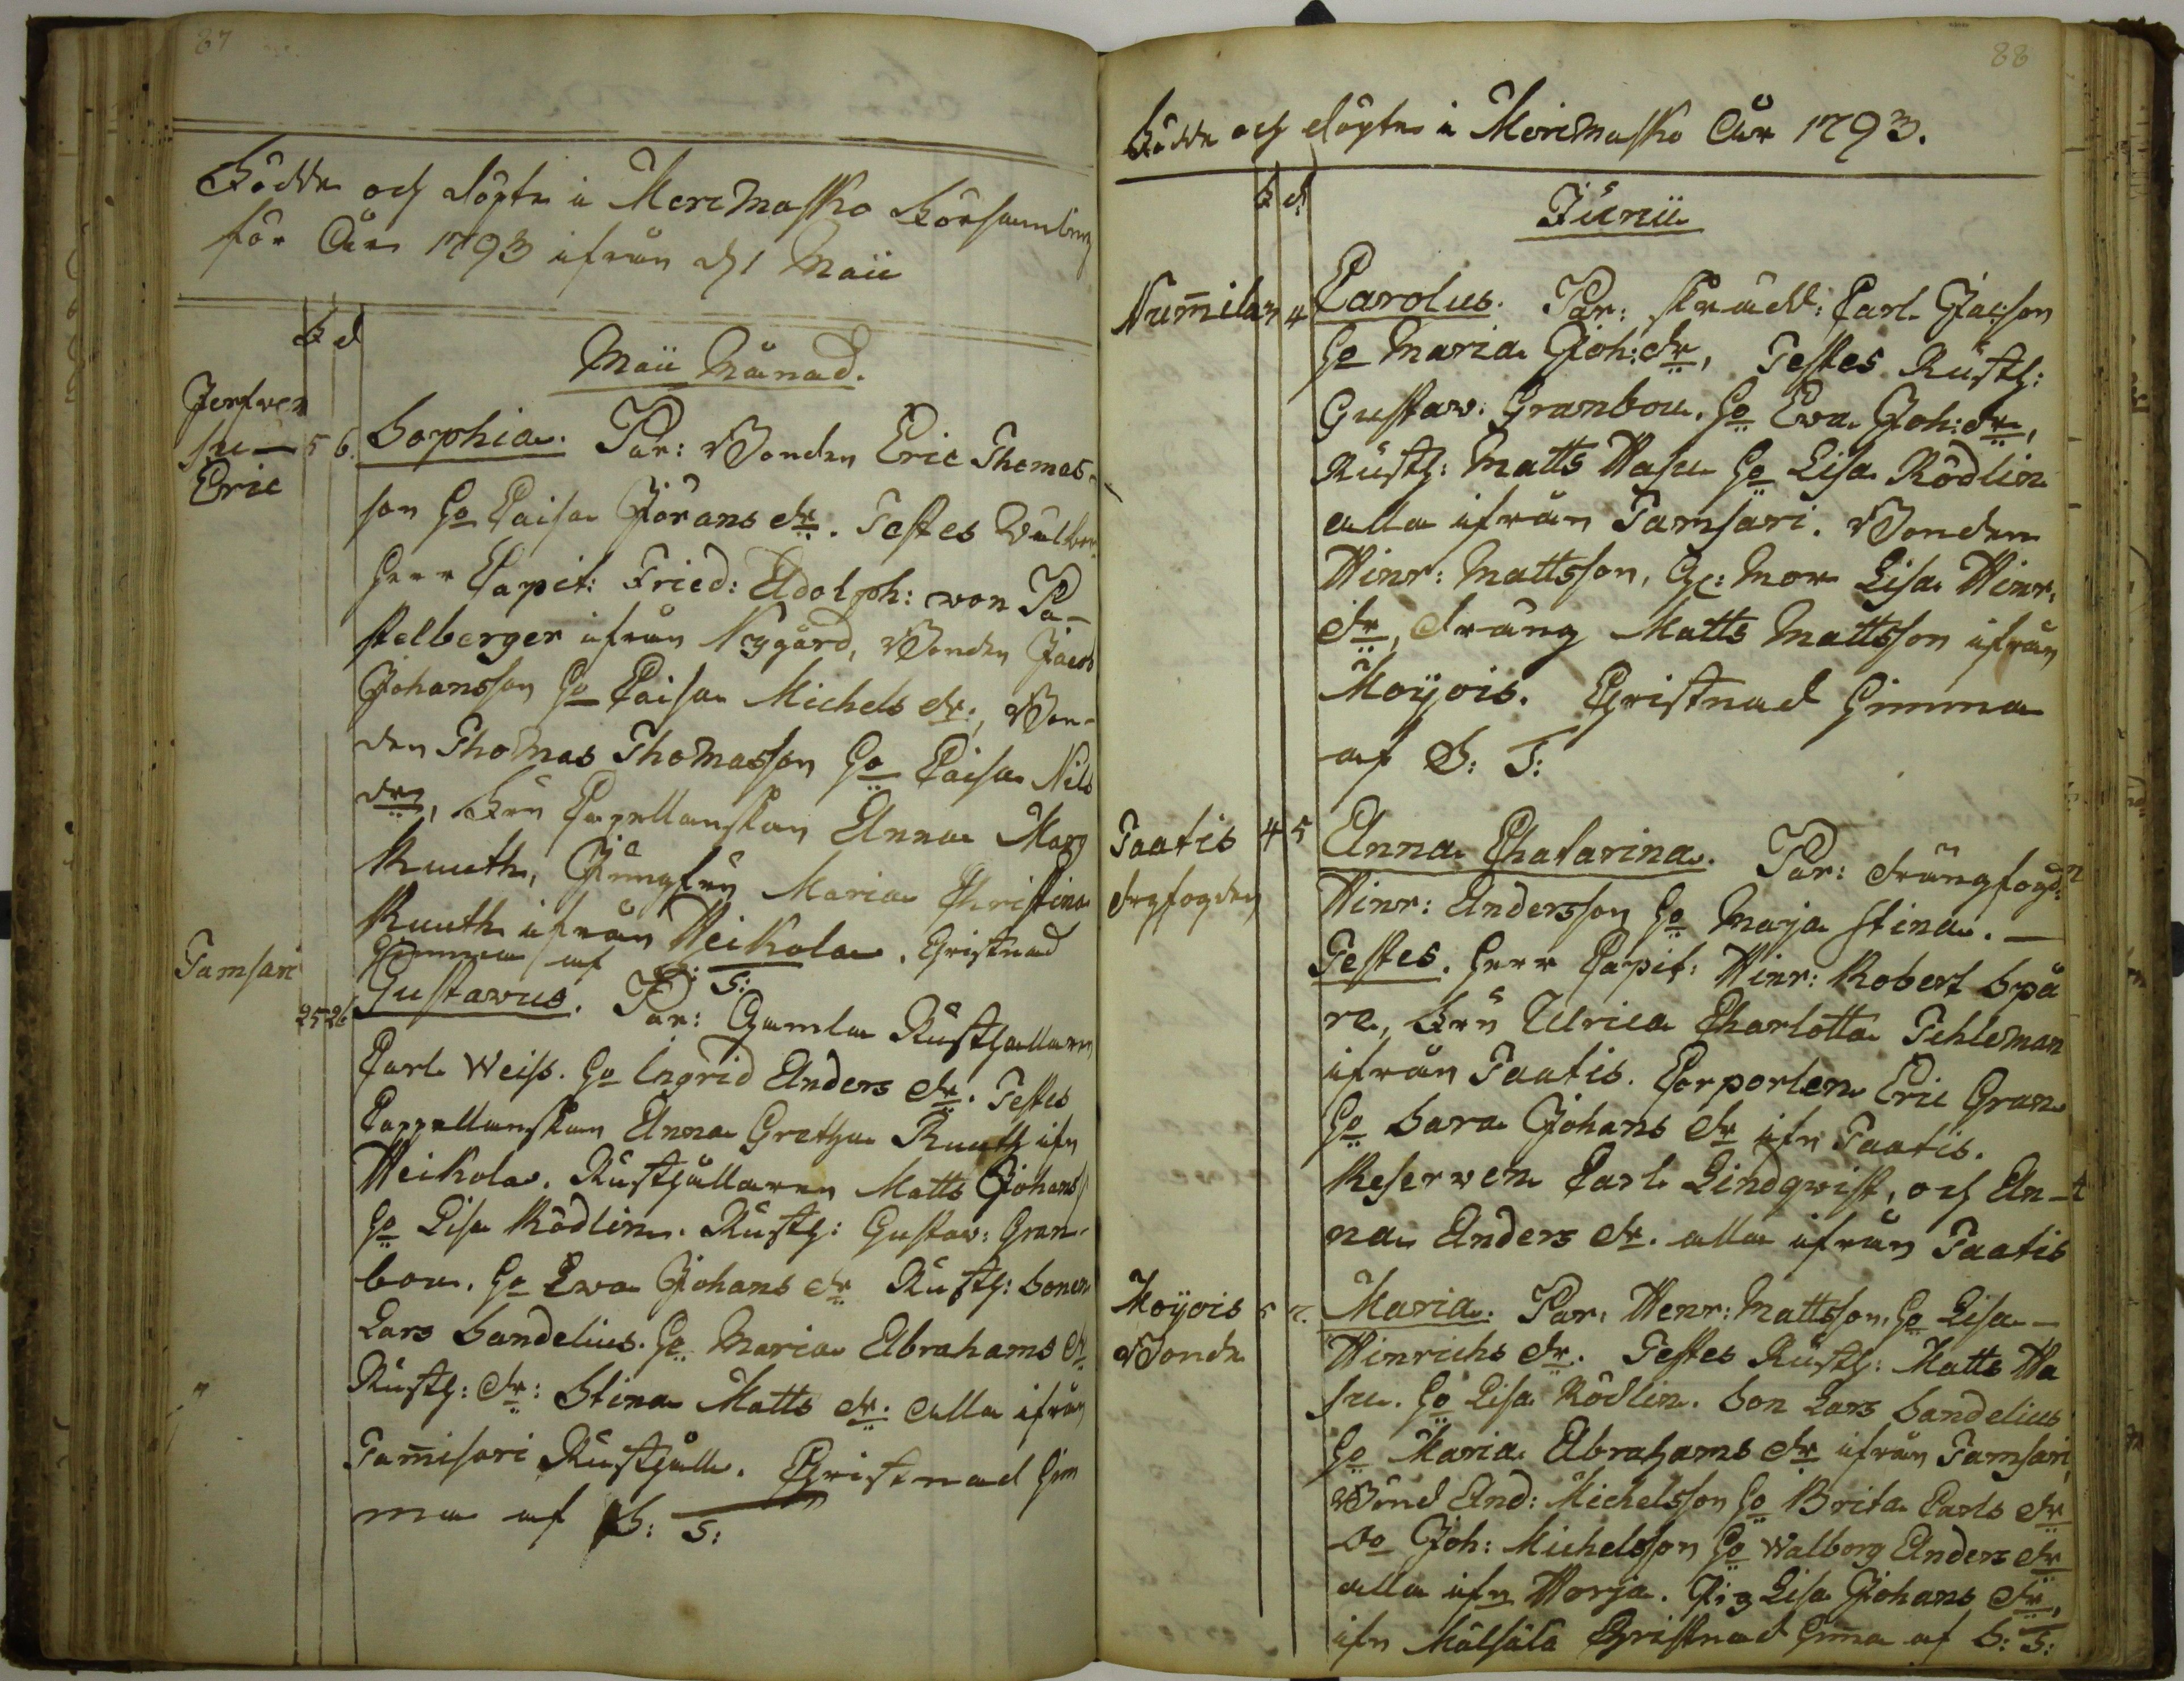 87
Födde och döpte i MereMasko Församling
för År 1793 ifrån d 1 Maii
F d
Maii Månad.
Jerfven
su — 5 6. Sophia. Par: Bonden Eric Thomas-
Eric
son Ho Caisa Jörans dr. Testes Wälbor:
Herr Capit: Fried: Adolph: von Pi-
stelberger ifrån Nygård, Bonden Jacob
Johansson Ho Caisa Michels dr, Bon-
den Thomas Thomasson Ho Caisa Nils
dr, Fru Capellanskan Anna Marg
Ruuth, Jungfru Maria Christina
Ruuth ifrån Heikola. Cristnad
Hemma af S: S:
Tamsari
25 26 Gustavus. Par: Gamla Rusthållaren
Carl Weiss. Ho Ingrid Anders dr. Testes
Cappellanskan Anna Gretha Ruuth ifn
Heikola. Rusthållaren Matts Johans
Ho Lisa Rödlin. Rusth: Gustav: Gran-
bom. Ho Ewa Johans dr Rusth: Sonen
Lars Sandelius. Ho Maria Abrahams dr
Rusth: dr: Stina Matts dr. alla ifrån
Tamisari Rusthåll. Christnad Hem
ma af S: S:
88
Födde och döpte i MereMasko År 1793.
F d
Junii
Numila 3 4 Carolus. Par: skrädd: Carl Jacson
Ho Maria Joh: dr, Testes Rusth:
Gustav. Granbom. Ho Eva Joh: dr,
Rusth: Matts Hasu Ho Lisa Rödlin
alla ifrån Tamsari. Bonden
Hinr: Mattsson, Gl: Mor Lisa Hinr:
dr, dräng Matts Mattsson ifrån
Moyois. Christnad Hemma
af S: S:
Taatis 4 5 Anna Chatarina. Par: drängfogd:
drgfogden
Hinr: Andersson Ho Maja Stina. —
Testes. Herr Capit: Hinr: Robert Spå
re, Fru Ulrica Charlotta Tehleman
ifrån Taatis. Corporlen Eric Gran
Ho Sara Johans dr ifn Taatis.
Reserven Carl Lindqvist, och An-
na Anders dr. alla ifrån Taatis
Moyois 5 7. Maria. Par. Henr: Mattsson, Ho Lisa —
Bonde
Hinrichs dr. Testes Rusth: Matts Ha
su. Ho Lisa Rödlin. Son Lars Sandelius
Ho Maria Abrahams dr ifrån Tamsari,
Bond And: Michelsson Ho Brita Carls dr
Do Joh: Michelsson Ho Walborg Anders dr
alla ifn Horja. Pig Lisa Johans dr,
ifn Mälsälä Christnad Hema af S: S: